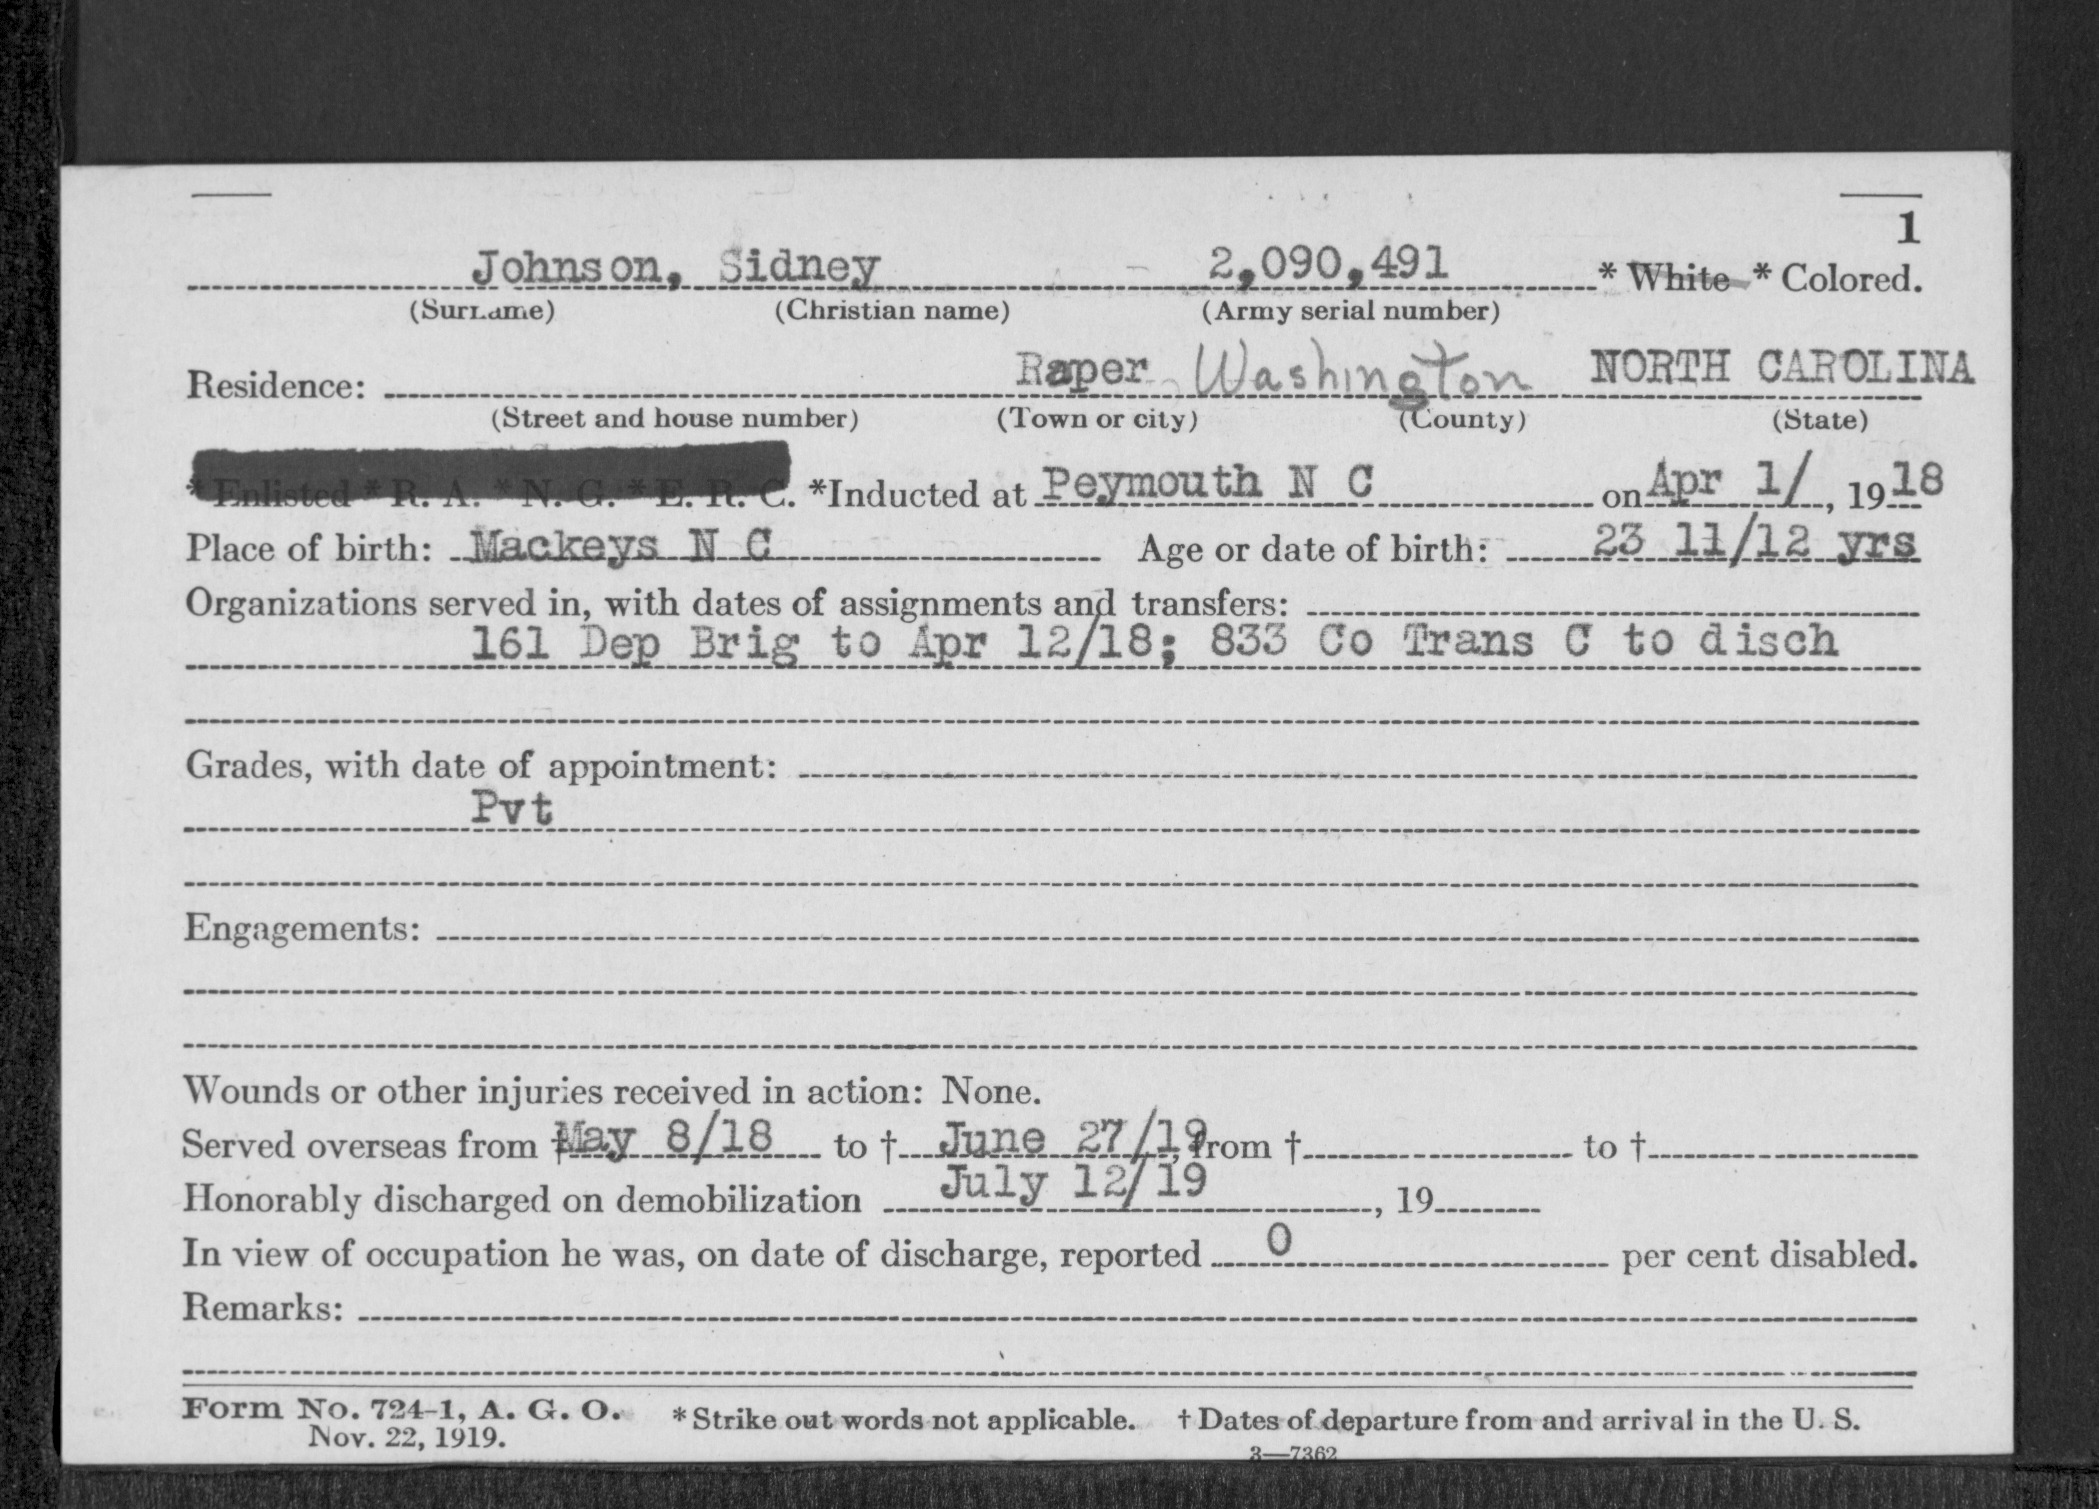 1
Johnson, Sidney 2,090,491 * White * Colored.
(Surname) (Christian name) (Army serial number)
Residence: Raper Washington NORTH CAROLINA
(Street and house number) (Town or city) (County) (State)
* Enlisted * R. A. * N. G. * E. R. C. *Inducted at Peymouth N C on Apr 1/, 1918
Place of birth: Mackeys N C Age or date of birth: 23 11/12 yrs
Organizations served in, with dates of assignments and transfers:
161 Dep Brig to Apr 12/18; 833 Co Trans C to disch
Grades, with date of appointment:
Pvt
Engagements:
Wounds or other injuries received in action: None.
Served overseas from † May 8/18 to † June 27/19, from † to †
Honorably discharged on demobilization July 12/19, 19
In view of occupation he was, on date of discharge, reported 0 per cent disabled.
Remarks:
Form No. 724-1, A. G. O. * Strike out words not applicable. † Dates of departure from and arrival in the U. S.
Nov. 22, 1919.
3—7362